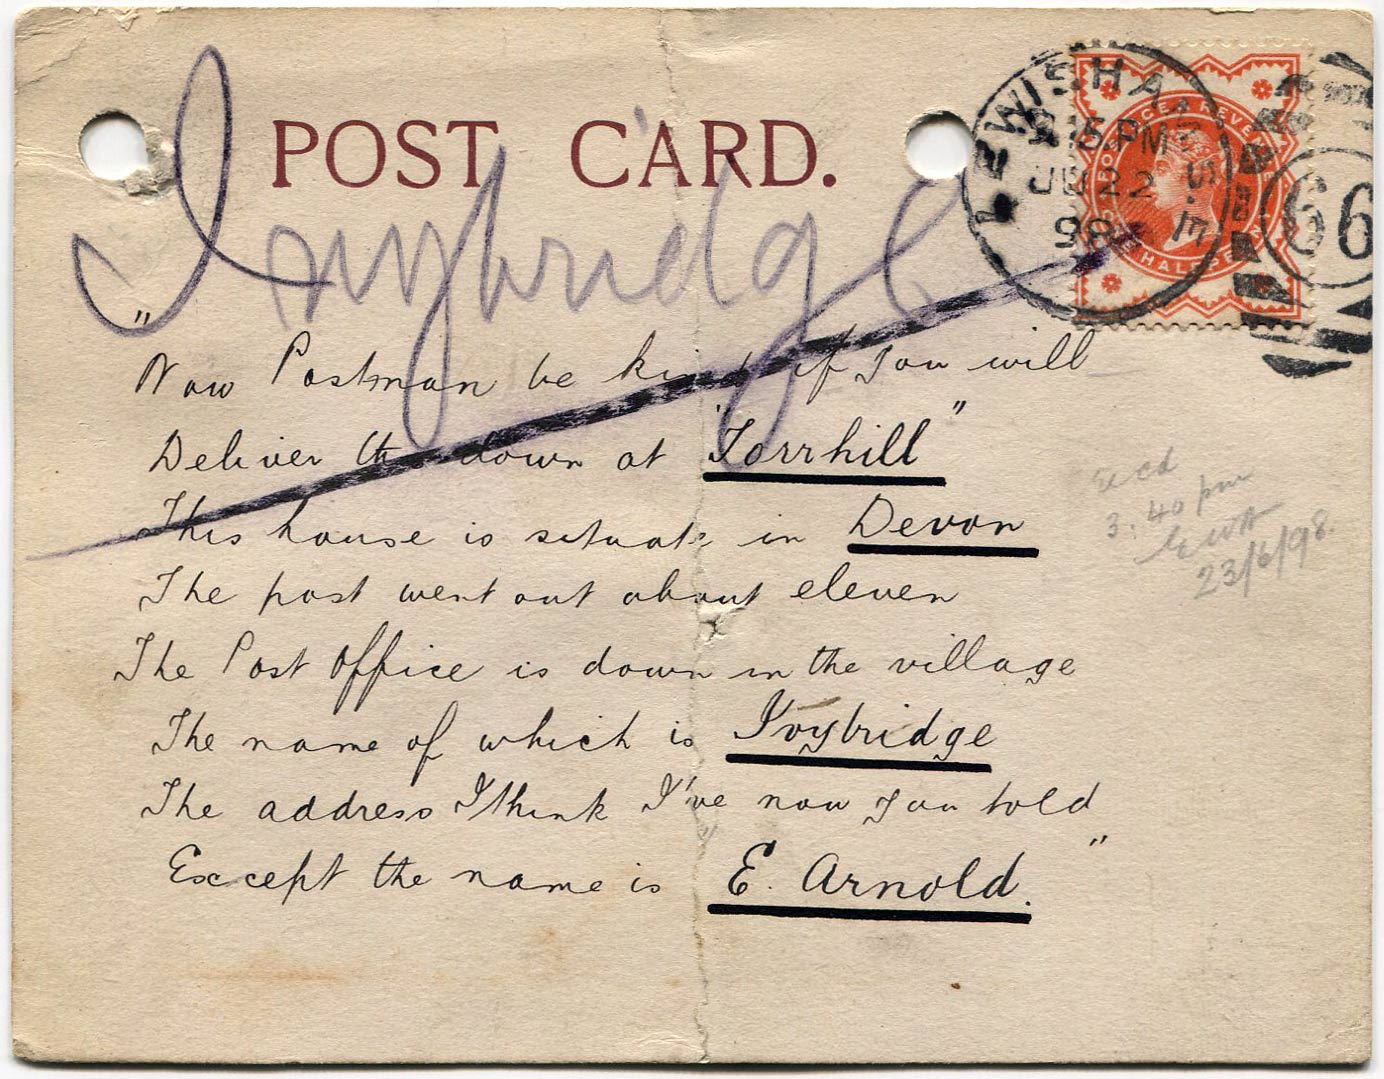 POST CARD.
Ivybridge
LEWISHAM S.E.
9.15.PM
JU 22
98
66
POSTAGE & REVENUE
HALFPENNY
"Now Postman be kind if you will
Deliver this down at "Torrhill"
This house is situate in Devon
The post went out about eleven
The Post Office is down in the village
The name of which is Ivybridge
The address I think I've now you told
Except the name is E. Arnold."
recd
3:40 pm
23/6/98.